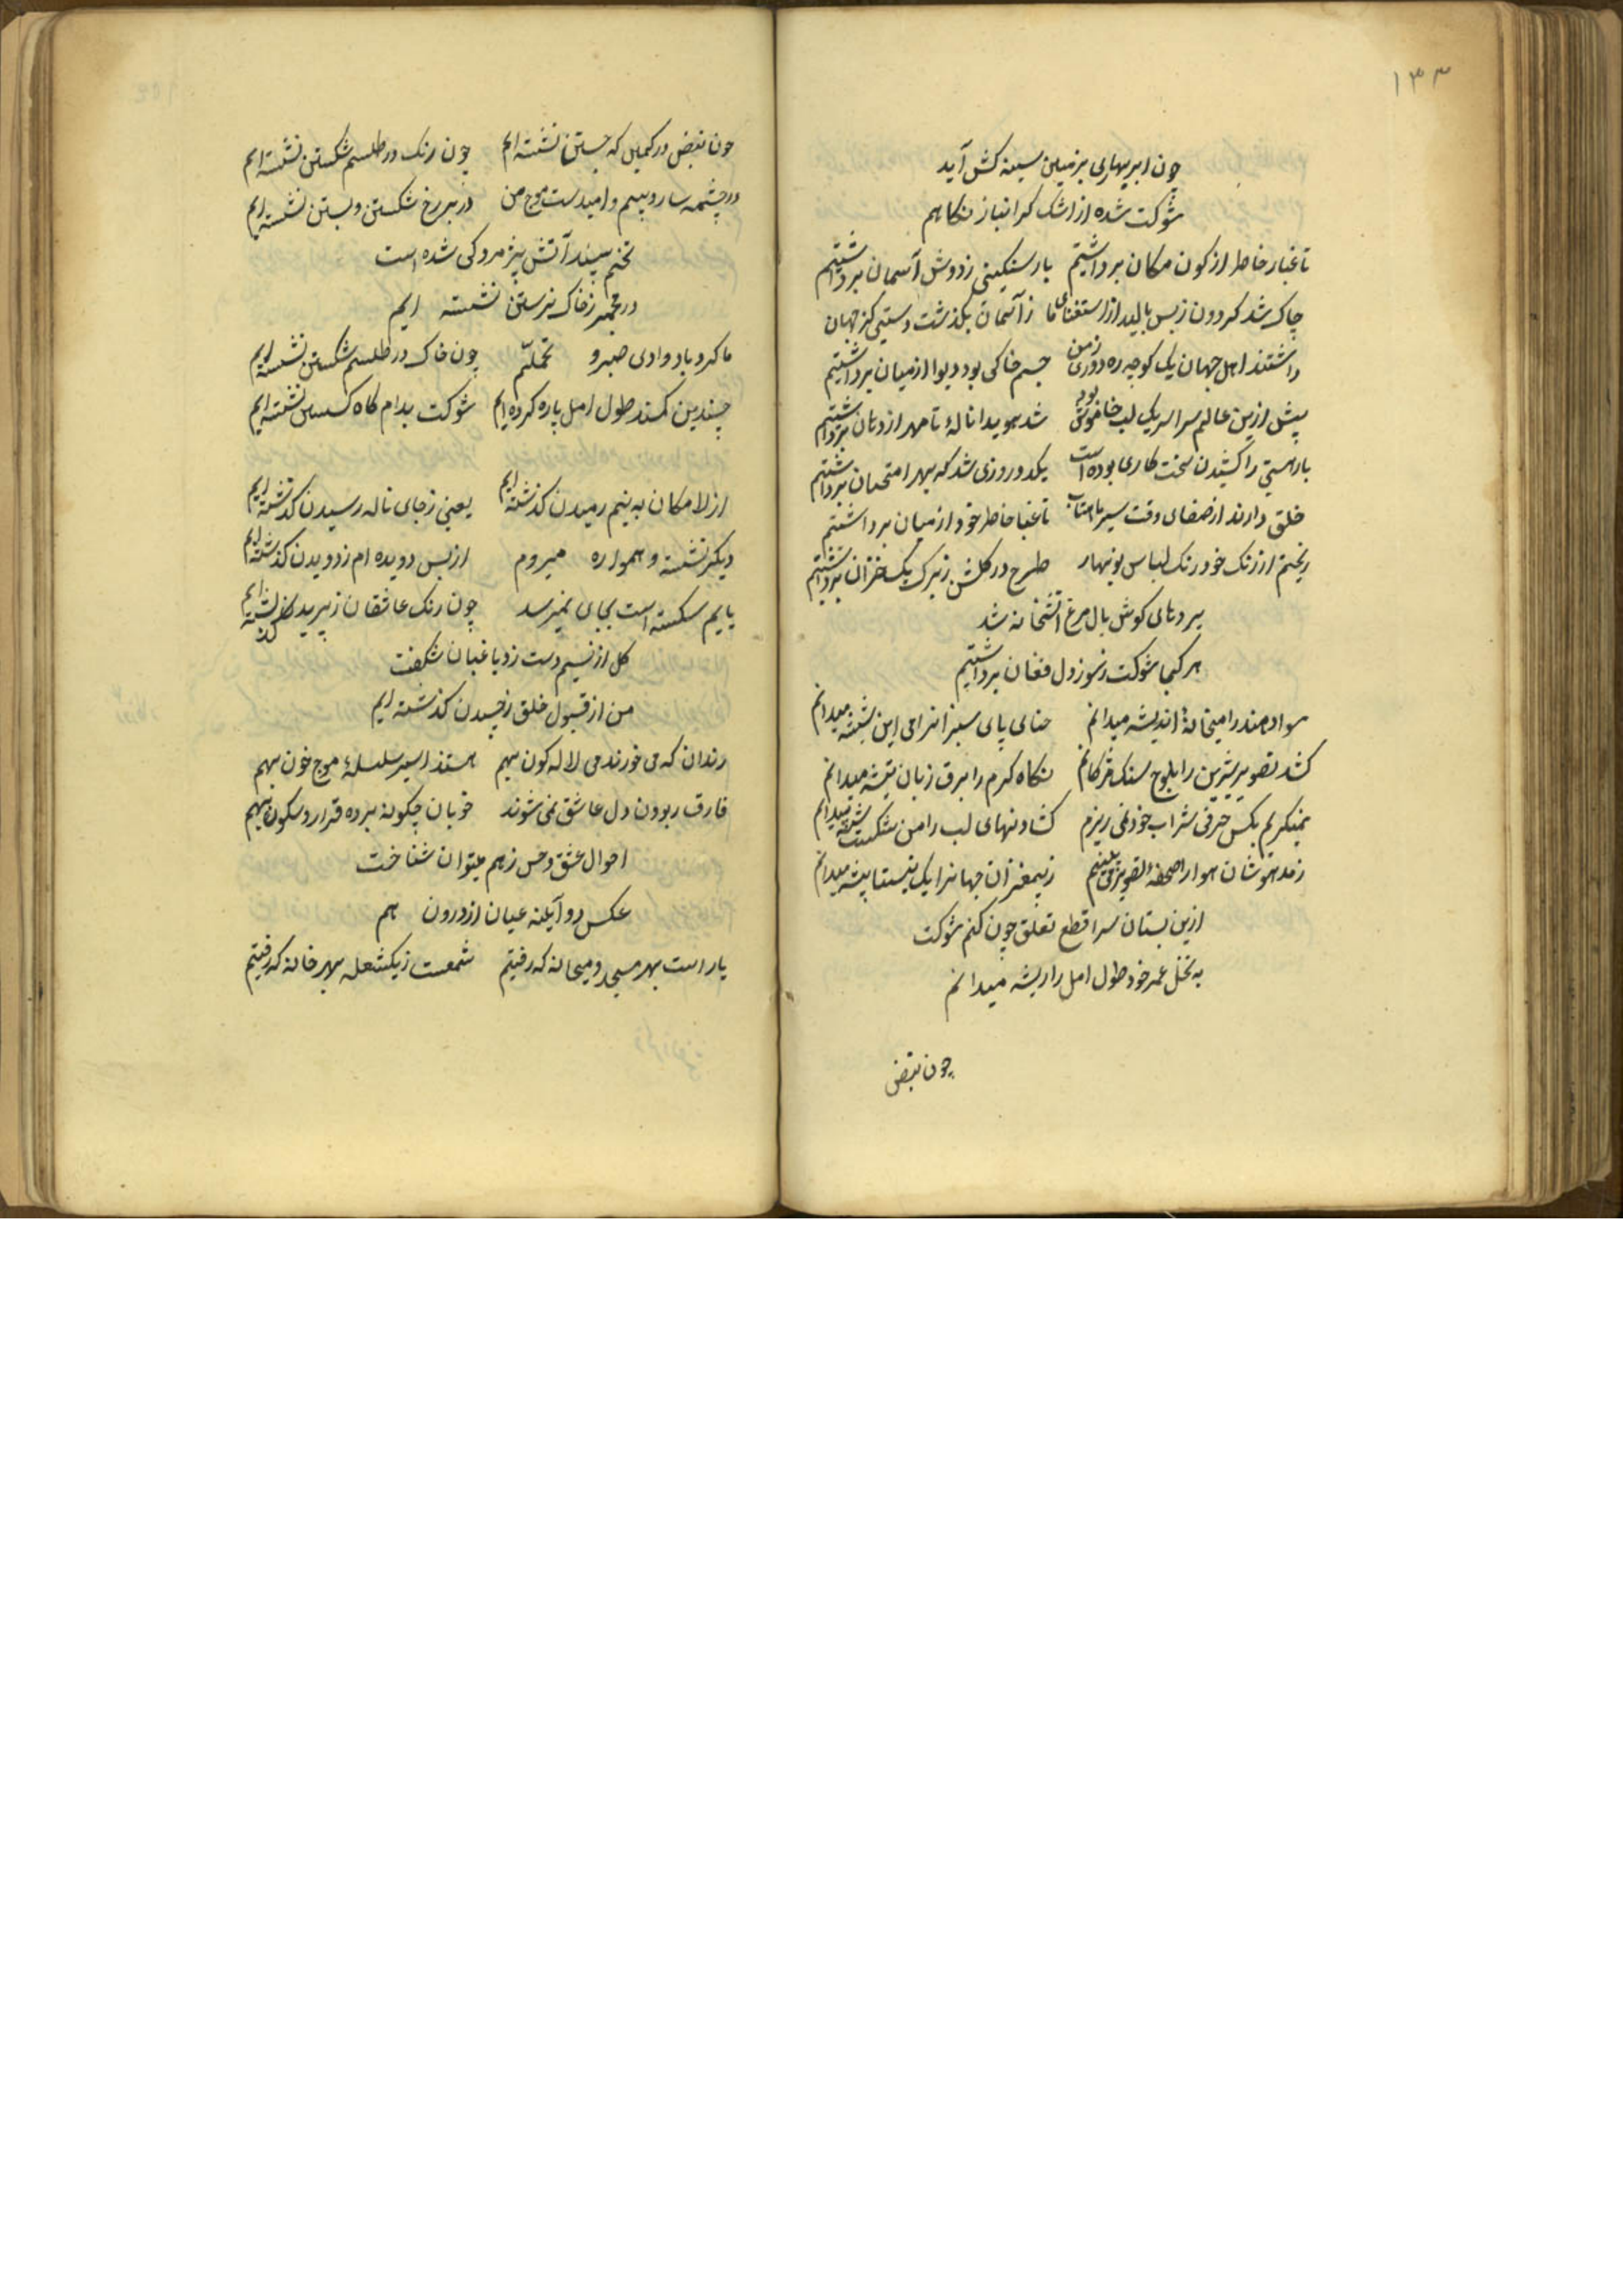 ۱۳۳
چون ابر بهاری بزمین سینه کش آید
شوکت شده از اشک کرانبار نکاهم
تا غبار خاطر از کون مکان برداشتیم بار سنکینی ز دوش آسمان برداشتیم
چاک شد کردون ز بس بالید از استغنای ما ز آسمان بکذشت دستی کز جهان
داشتند اهل جهان یک کوچه ره دوری ز من جسم خاکی بود دیوار از میان برداشتیم
پیش ازین عالم سراسر یک لب خاموش بود شد هویدا نالهٔ تا مهر از دهان برداشتیم
بار هستی را کشیدن سخت کاری بوده است یکدو روزی شد که بهر امتحان برداشتیم
خلق دارند از صفای وقت سیر ماهتاب تا غبا خاطر خود از میان برداشتیم
ریختم از رنک خود رنک لباس نوبهار طرح در کلشن ز برک یک خزان برداشتیم
پردهای کوش بال مرغ آتشخانه شد
هر کجا شوکت ز سوز دل فغان برداشتیم
سواد هند را میخانهٔ اندیشه میدانم حنای پای سبزانرا می این شیشه میدانم
کشد تصویر شیرین را بلوح سنک مژکانم نکاه کرم را برق زبان تیشه میدانم
نمیکریم بکس حرفی شراب خود نمی ریزم کشاد نهای لب را من شکست شیشه میدانم
ز مدهوشان هوا را صفحهٔ تصویر می بینم ز بیمغزان جهانرا یک نیستان بیشه میدانم
ازین بستان سرا قطع تعلق چون کنم شوکت
به نخل عمر خود طول امل را ریشه میدانم
چون نبض
چون نبض در کمین که جستن نشسته ایم چون رنک در طلسم شکستن نشسته ایم
در چشمه سار و بیم و امید ست موج من در برزخ شکستن و بستن نشسته ایم
تخم سپند آتش پژمردکی شده است
در مجمر ز خاک نرستن نشسته ایم
ما کرد باد وادی صبر و تحملیم چون خاک در طلسم شکستن نشسته ایم
چندین کمند طول امل پاره کرده ایم شوکت بدام کاه کسستن نشسته ایم
از لا مکان به نیم رمیدن کذشته ایم یعنی ز جای ناله رسیدن کذشته ایم
دیکر نشسته و همواره میروم از بس دویده ام ز دویدن کذشته ایم
پایم شکسته است بجای نمیرسد چون رنک عاشقان ز پریدن کذشته ایم
کل از نسیم دست زد باغبان شکفت
من از قبول خلق ز چیدن کذشته ایم
رندان که می خورند می لاله کون بهم هستند اسیر سلسلهٔ موج خون بهم
فارق ربودن دل عاشق نمی شوند خوبان چکونه برده قرار و سکون بهم
احوال عشق و حسن ز هم میتوان شناخت
عکس دو آینه عیان از درون هم
یار است بهر مسجد و میخانه که رفتیم شمعست ز یکشعله بهر خانه که رفتیم